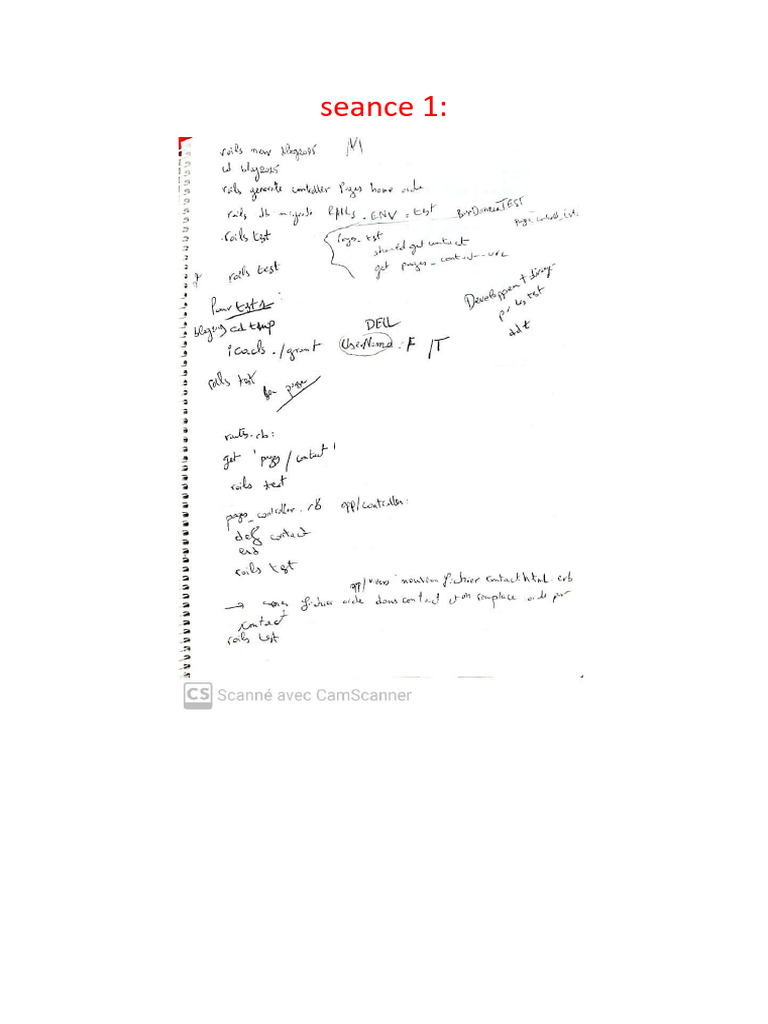 seance 1:
rails new blog2015
cd blog2015
rails generate controller Pages home aide
rails db migrate RAILS_ENV = test Base Donnée TEST
pages_control_test
rails test
pages_test
should get contact
get pages_contact_url
rails test
Developpement dirigé
par les test
ddt
Pour tests :
cd tmp
DELL
icacls . /grant UserName : F /T
rails test
routes.rb :
get 'pages/contact'
rails test
pages_controller.rb app/controller :
def contact
end
rails test
app/views nouveau fichier contact.html.erb
→ fichier aide dans contact et on remplace aide par
contact
rails test
CS Scanné avec CamScanner